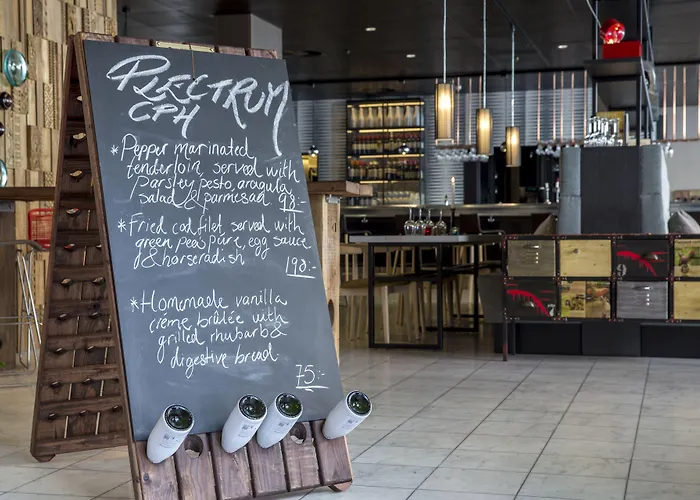 PLECTRUM
CPH
*Pepper marinated
tenderloin served with
parsley pesto, arugula
salad & parmesad 98:-
*Fried codfilet served with
green pea pure, egg sauce
& horseradish
198:-
*Homemade vanilla
créme brûlée with
grilled rhubarb &
digestive bread
75:-